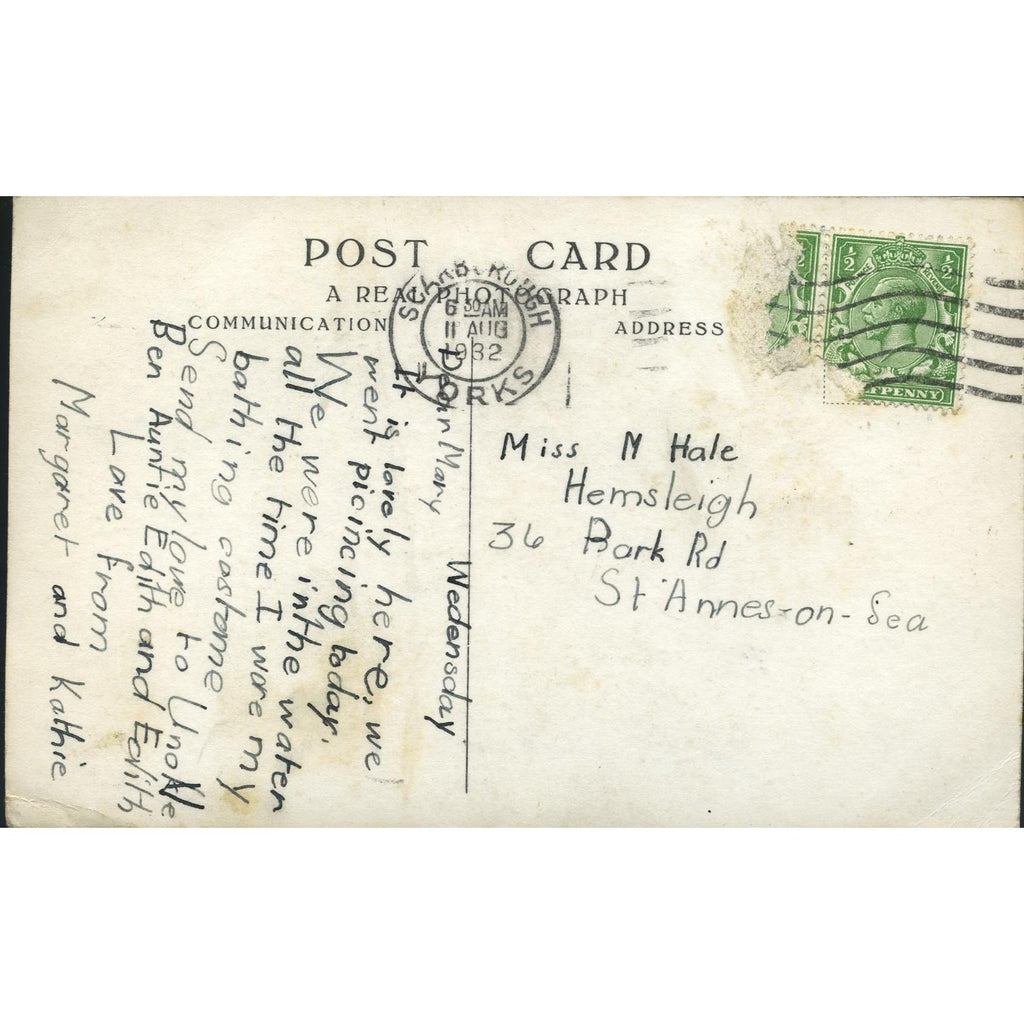 POST CARD
A REAL PHOTOGRAPH
COMMUNICATION
ADDRESS
SCARBOROUGH
6 30 AM
11 AUG
1932
YORKS
½ ½
½
POSTAGE
FPENNY
Wedensday
Dear Mary
It is lovely here, we
went picincing today.
We were inthe water
all the time I wore my
bathing costome
Send my love to Uncle
Ben Auntie Edith and Edith
Love from
Margaret and Kathie
Miss M Hale
Hemsleigh
36 Park Rd
St Annes-on-Sea